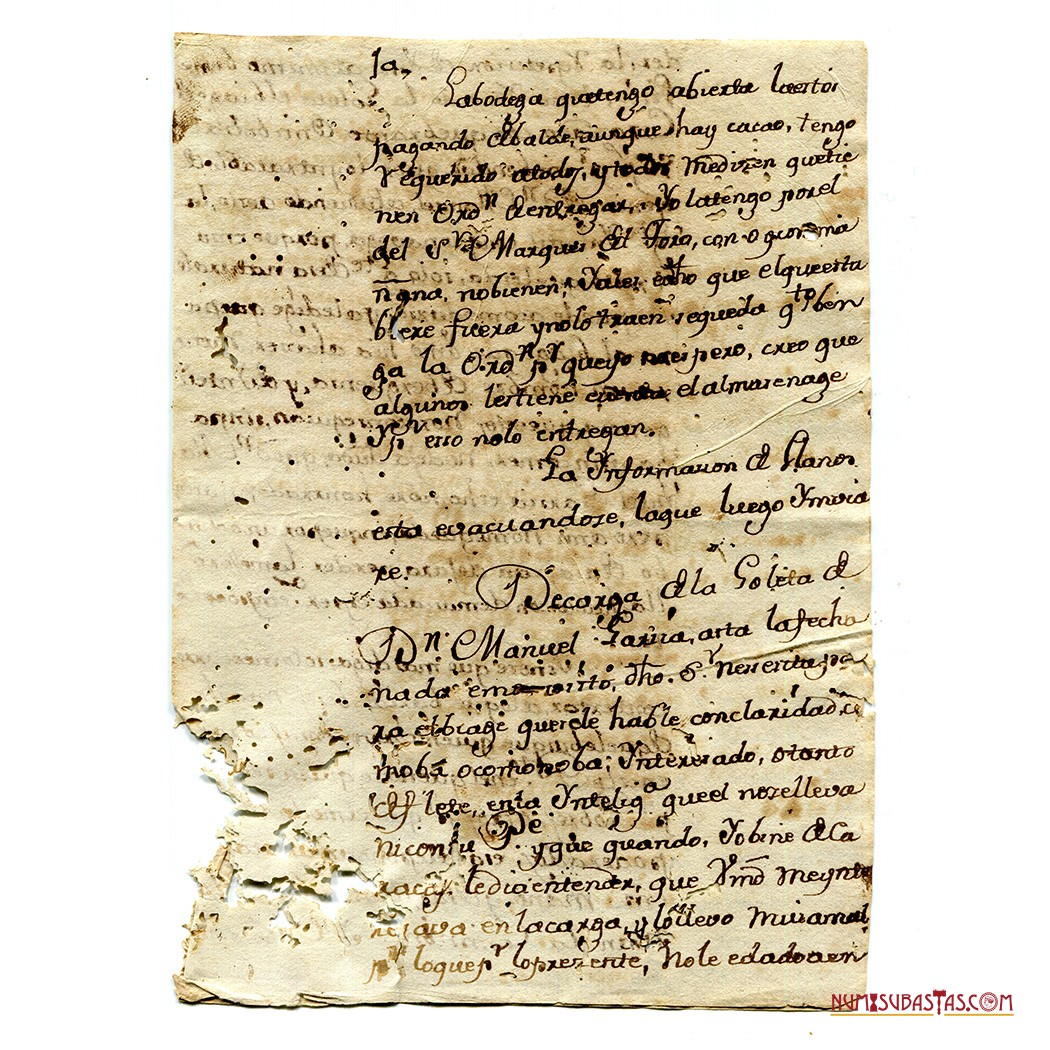 1a,
La bodega que tengo abierta la estoi
pagando debalde, aunque hay cacao, tengo
requerido atodos, y todos me dizen que tie
nen Ordn de entregar, Yo la tengo por el
del Sr Marques del Toro, con o gxoxma
ngna, no bienen, Vale,
blere fuera y no lo traen, se queda qto ben
ga la Ordn pr que yo pero, creo que
algunos les tiene cuenta el almasenage
y pr esso no lo entregan.
La Ynformazion de Llanos
esta evacuandose, laque luego Ymvia
re.
De carga de la Goleta de
Dn Manuel Garzia, asta la fecha
nada dho. Sr Nesesita pa
ra el biage que se le hable con claridad, co
mo bá, o como no ba; Ynteresado, o tanto
de flete, en la Yntelig.a que el no se lleva
ni con su Pe y que quando, Yo bine de Ca
racas le di a entender, que Vmd me Ynte
resava en la carga, y lo llevo mui a mal
pr lo que pr lo prezente, No le e dado a en
NUMISUBASTAS.COM